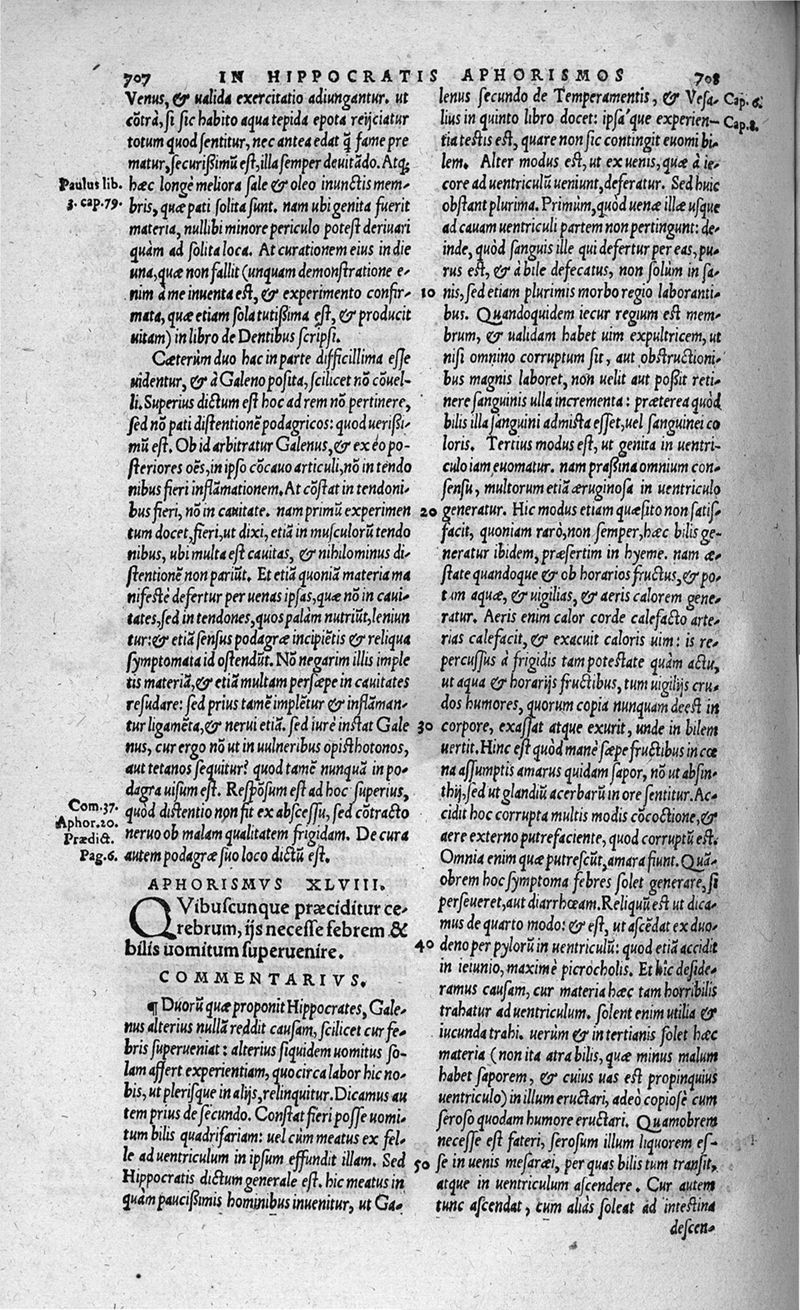 707 IN HIPPOCRATIS APHORISMOS 708
Venus, & ualida exercitatio adiungantur. ut
cõtrà, si sic habito aqua tepida epota reijciatur
totum quod sentitur, nec antea edat q̃ fame pre
matur, securißimũ est, illa semper deuitãdo. Atq;
Paulus lib. 3. cap. 79.
hæc longè meliora sale & oleo inunctis mem-
bris, quæ pati solita sunt. nam ubi genita fuerit
materia, nullibi minore periculo potest deriuari
quàm ad solita loca. At curationem eius in die
una, quæ non fallit (unquam demonstratione e-
nim à me inuenta est, & experimento confir-
mata, quæ etiam sola tutißima est, & producit
uitam) in libro de Dentibus scripsi.
Cæterùm duo hac in parte difficillima esse
uidentur, & à Galeno posita, scilicet nõ cõuel-
li. Superius dictum est hoc ad rem nõ pertinere,
sed nõ pati distentionẽ podagricos: quod uerißi-
mũ est. Ob id arbitratur Galenus, & ex eo po-
steriores oẽs, in ipso cõcauo articuli, nõ in tendo
nibus fieri inflãmationem. At cõstat in tendoni-
bus fieri, nõ in cauitate. nam primũ experimen
tum docet, fieri, ut dixi, etiã in musculorũ tendo
nibus, ubi multa est cauitas, & nihilominus di-
stentionẽ non pariũt. Et etiã quoniã materia ma
nifestè defertur per uenas ipsas, quæ nõ in caui-
tates, sed in tendones, quos palàm nutriũt, leniun
tur: & etiã sensus podagræ incipiẽtis & reliqua
symptomata id ostendũt. Nõ negarim illis imple
tis materiã, & etiã multam persæpe in cauitates
resudare: sed prius tamẽ implẽtur & inflãman-
tur ligamẽta, & nerui etiã. sed iurè instat Gale
nus, cur ergo nõ ut in uulneribus opisthotonos,
aut tetanos sequitur? quod tamẽ nunquã in po-
dagra uisum est. Respõsum est ad hoc superius,
Com. 37.
Aphor. 20.
Prædict.
Pag. 6.
quòd distentio non fit ex abscessu, sed cõtracto
neruo ob malam qualitatem frigidam. De cura
autem podagræ suo loco dictũ est.
APHORISMVS XLVIII.
QVibuscunque præciditur ce-
rebrum, ijs necesse febrem &
bilis uomitum superuenire.
COMMENTARIVS.
¶ Duorũ quæ proponit Hippocrates, Gale-
nus alterius nullã reddit causam, scilicet cur fe-
bris superueniat: alterius siquidem uomitus so-
lam affert experientiam, quocirca labor hic no-
bis, ut plerisque in alijs, relinquitur. Dicamus au
tem prius de secundo. Constat fieri posse uomi-
tum bilis quadrifariam: uel cùm meatus ex fel-
le ad uentriculum in ipsum effundit illam. Sed
Hippocratis dictum generale est. hic meatus in
quàm paucißimis hominibus inuenitur, ut Ga-
lenus secundo de Temperamentis, & Vesa-
Cap. 6.
lius in quinto libro docet: ipsa´que experien-
Cap. 8.
tia testis est, quare non sic contingit euomi bi-
lem. Alter modus est, ut ex uenis, quæ à ie-
core ad uentriculũ ueniunt, deferatur. Sed huic
obstant plurima. Primùm, quòd uenæ illæ usque
ad cauam uentriculi partem non pertingunt: de-
inde, quòd sanguis ille qui defertur per eas, pu-
rus est, & à bile defecatus, non solùm in sa-
10 nis, sed etiam plurimis morbo regio laboranti-
bus. Quandoquidem iecur regium est mem-
brum, & ualidam habet uim expultricem, ut
nisi omnino corruptum sit, aut obstructioni-
bus magnis laboret, non uelit aut poßit reti-
nere sanguinis ulla incrementa: præterea quòd
bilis illa sanguini admista esset, uel sanguinei co
loris. Tertius modus est, ut genita in uentri-
culo iam euomatur. nam praßina omnium con-
sensu, multorum etiã æruginosa in uentriculo
20 generatur. Hic modus etiam quæsito non satis-
facit, quoniam rarò, non semper, hæc bilis ge-
neratur ibidem, præsertim in hyeme. nam æ-
state quandoque & ob horarios fructus, & po-
tum aquæ, & uigilias, & aeris calorem gene-
ratur. Aeris enim calor corde calefacto arte-
rias calefacit, & exacuit caloris uim: is re-
percussus à frigidis tam potestate quàm actu,
ut aqua & horarijs fructibus, tum uigilijs cru-
dos humores, quorum copia nunquam deest in
30 corpore, exassat atque exurit, unde in bilem
uertit. Hinc est quòd manè sæpe fructibus in cœ
na assumptis amarus quidam sapor, nõ ut absin-
thij, sed ut glandiũ acerbarũ in ore sentitur. Ac-
cidit hoc corrupta multis modis cõcoctione, &
aere externo putrefaciente, quod corruptũ est.
Omnia enim quæ putrescũt, amara fiunt. Quã-
obrem hoc symptoma febres solet generare, si
perseueret, aut diarrhœam. Reliquũ est ut dica-
mus de quarto modo: & est, ut ascẽdat ex duo-
40 deno per pylorũ in uentriculũ: quod etiã accidit
in ieiunio, maximè picrocholis. Et hîc deside-
ramus causam, cur materia hæc tam horribilis
trahatur ad uentriculum. solent enim utilia &
iucunda trahi. uerùm & in tertianis solet hæc
materia (non ita atra bilis, quæ minus malum
habet saporem, & cuius uas est propinquius
uentriculo) in illum eructari, adeò copiosè cum
seroso quodam humore eructari. Quamobrem
necesse est fateri, serosum illum liquorem es-
50 se in uenis mesaræi, per quas bilis tum transit,
atque in uentriculum ascendere. Cur autem
tunc ascendat, cum aliàs soleat ad intestina
descen-